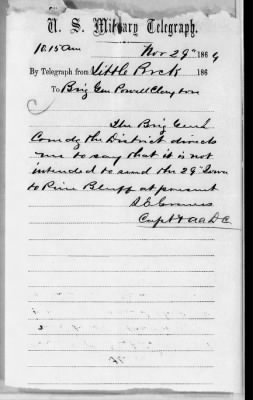 U. S. Military Telegraph.
10.15 am Nov 29" 1864
By Telegraph from Little Rock 186
To Brig Gen Powell Clayton
The Brig Genl
Comdg the District directs
me to say that it is not
intended to send the 29" Iowa
to Pine Bluff at present
Capt & AADC